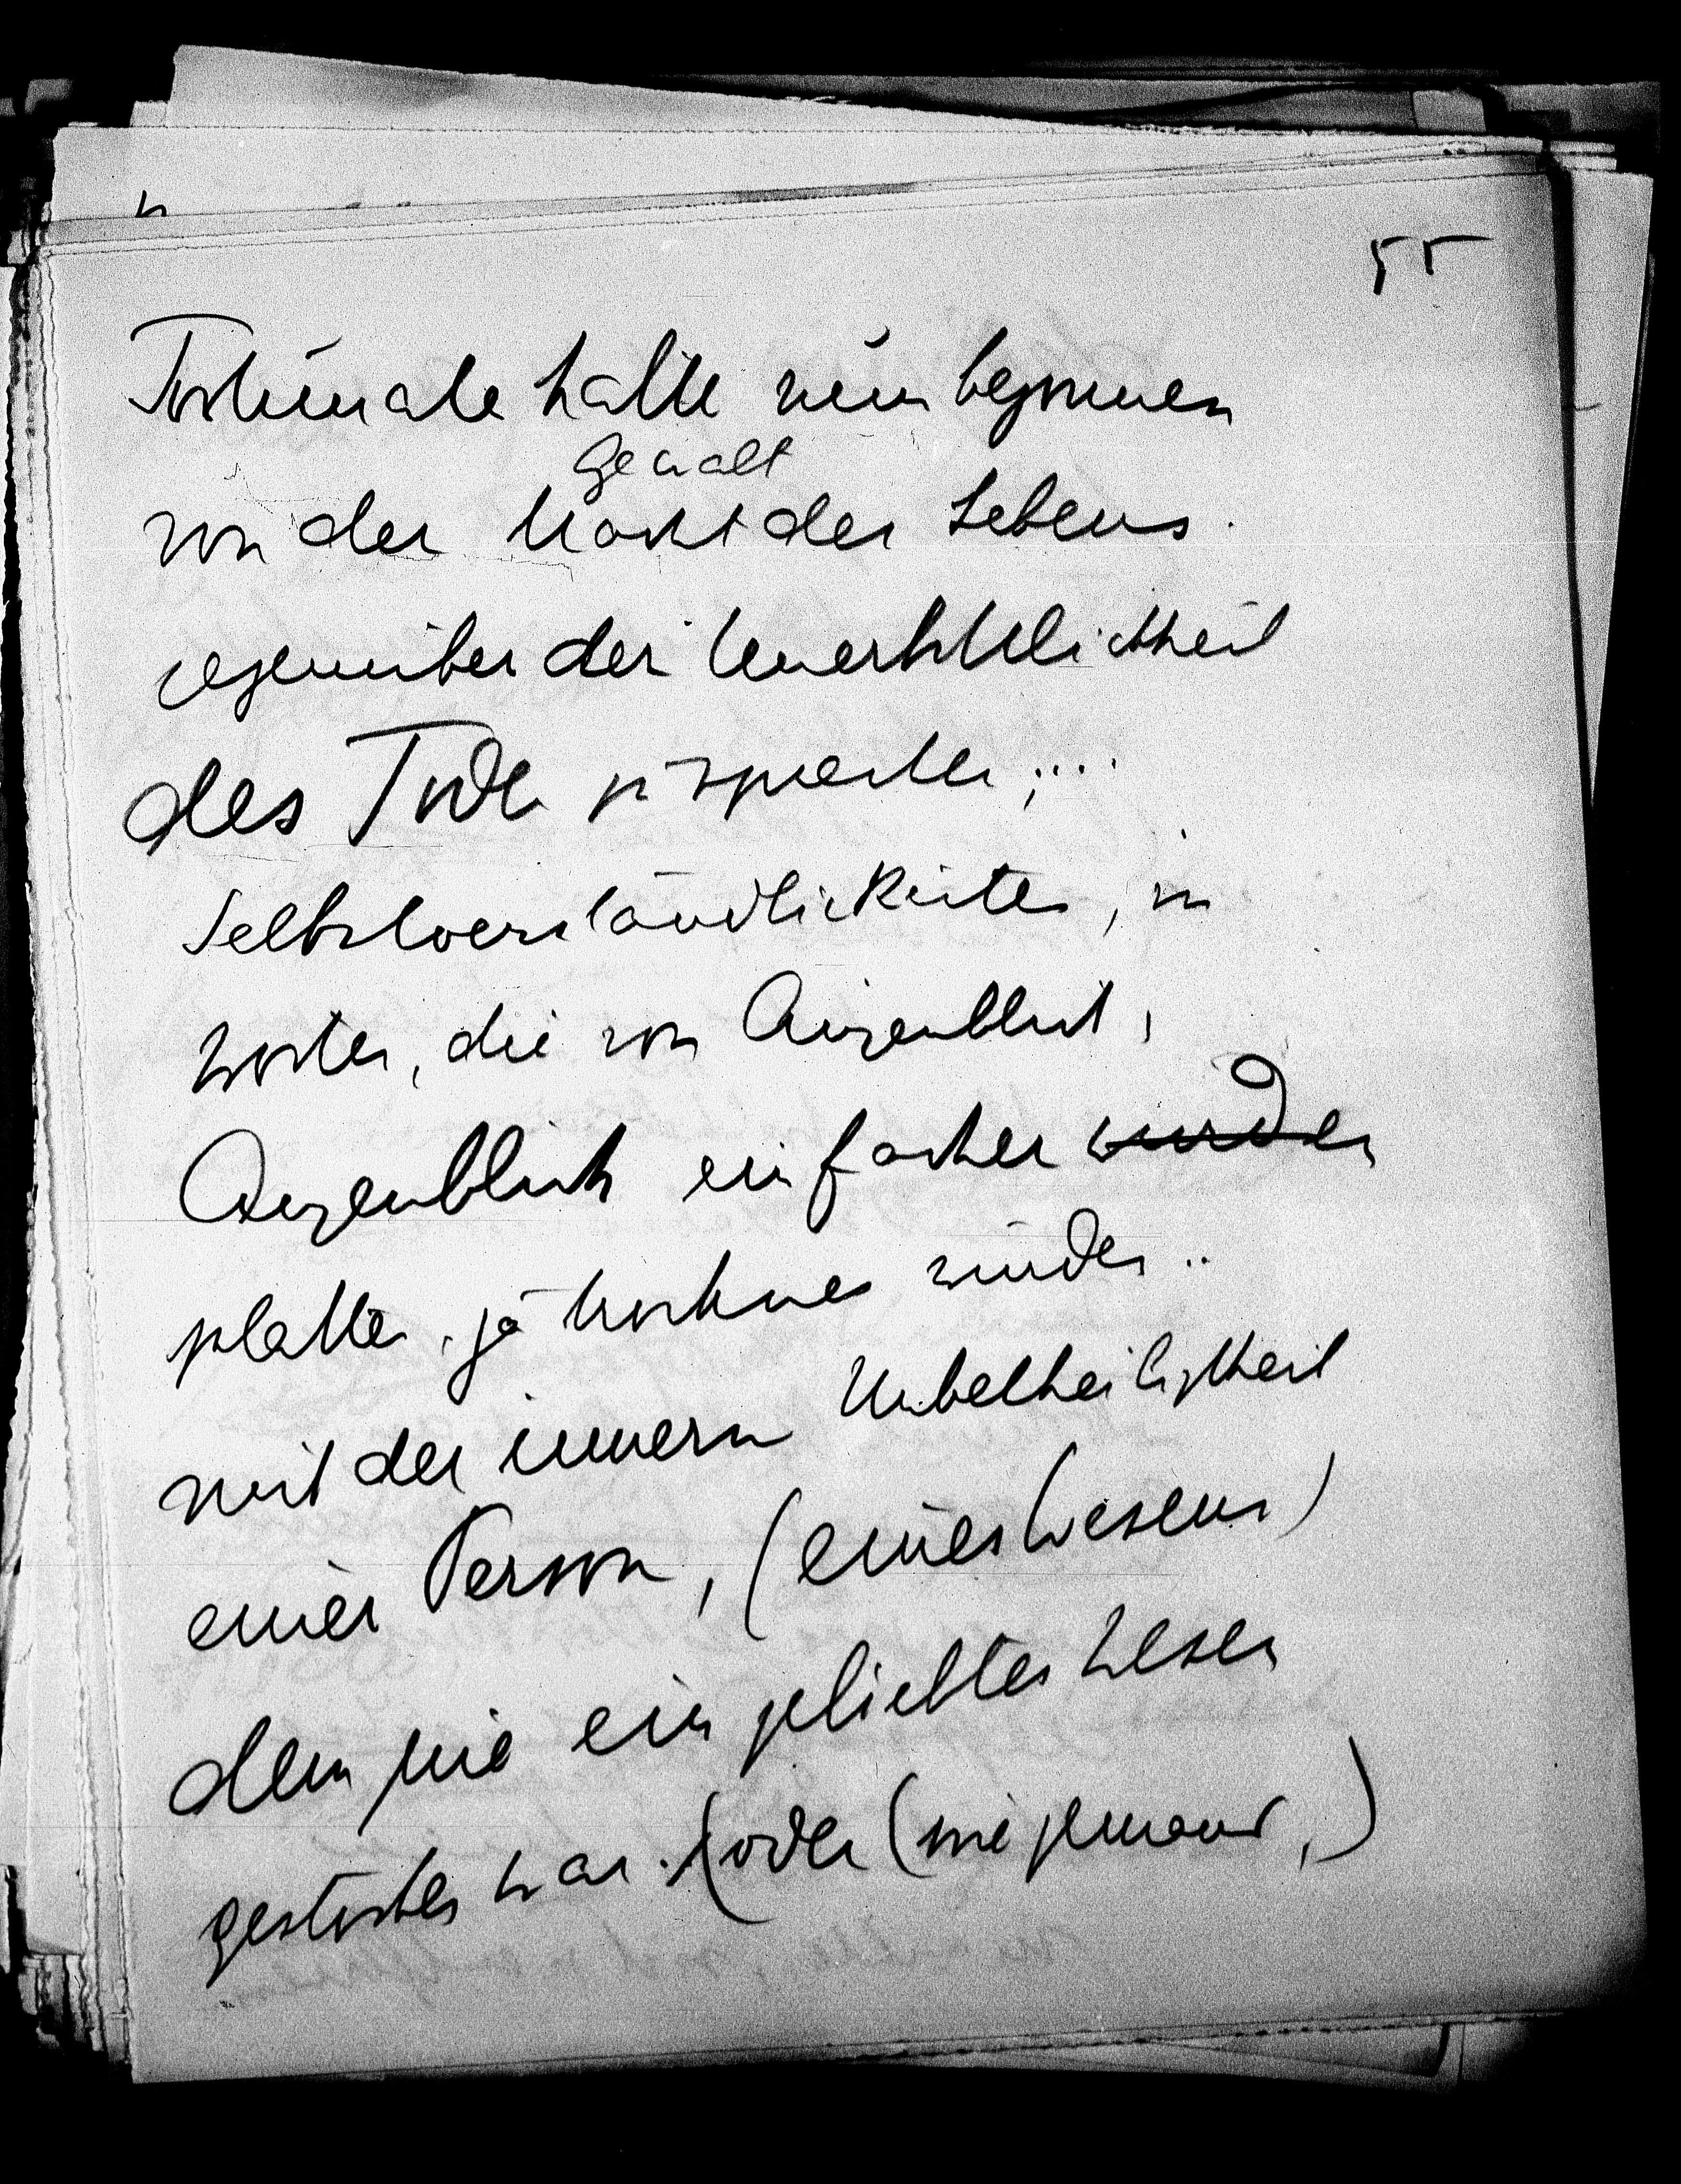 55
Fortunate hatte nun begonnen
Gewalt
von der Macht des Lebens
gegenüber der Unerbittlichkeit
des Todes zu sprechen, ...
Selbstverständlichkeiten, in
Worten, die von Augenblick,
Augenblick einfacher wurden
platter, ja trockner wurden ..
mit der innern Unbetheiligtheit
einer Person, (eines Wesens)
dem nie ein geliebtes Wesen
gestorben war. (oder (nie jemand,)